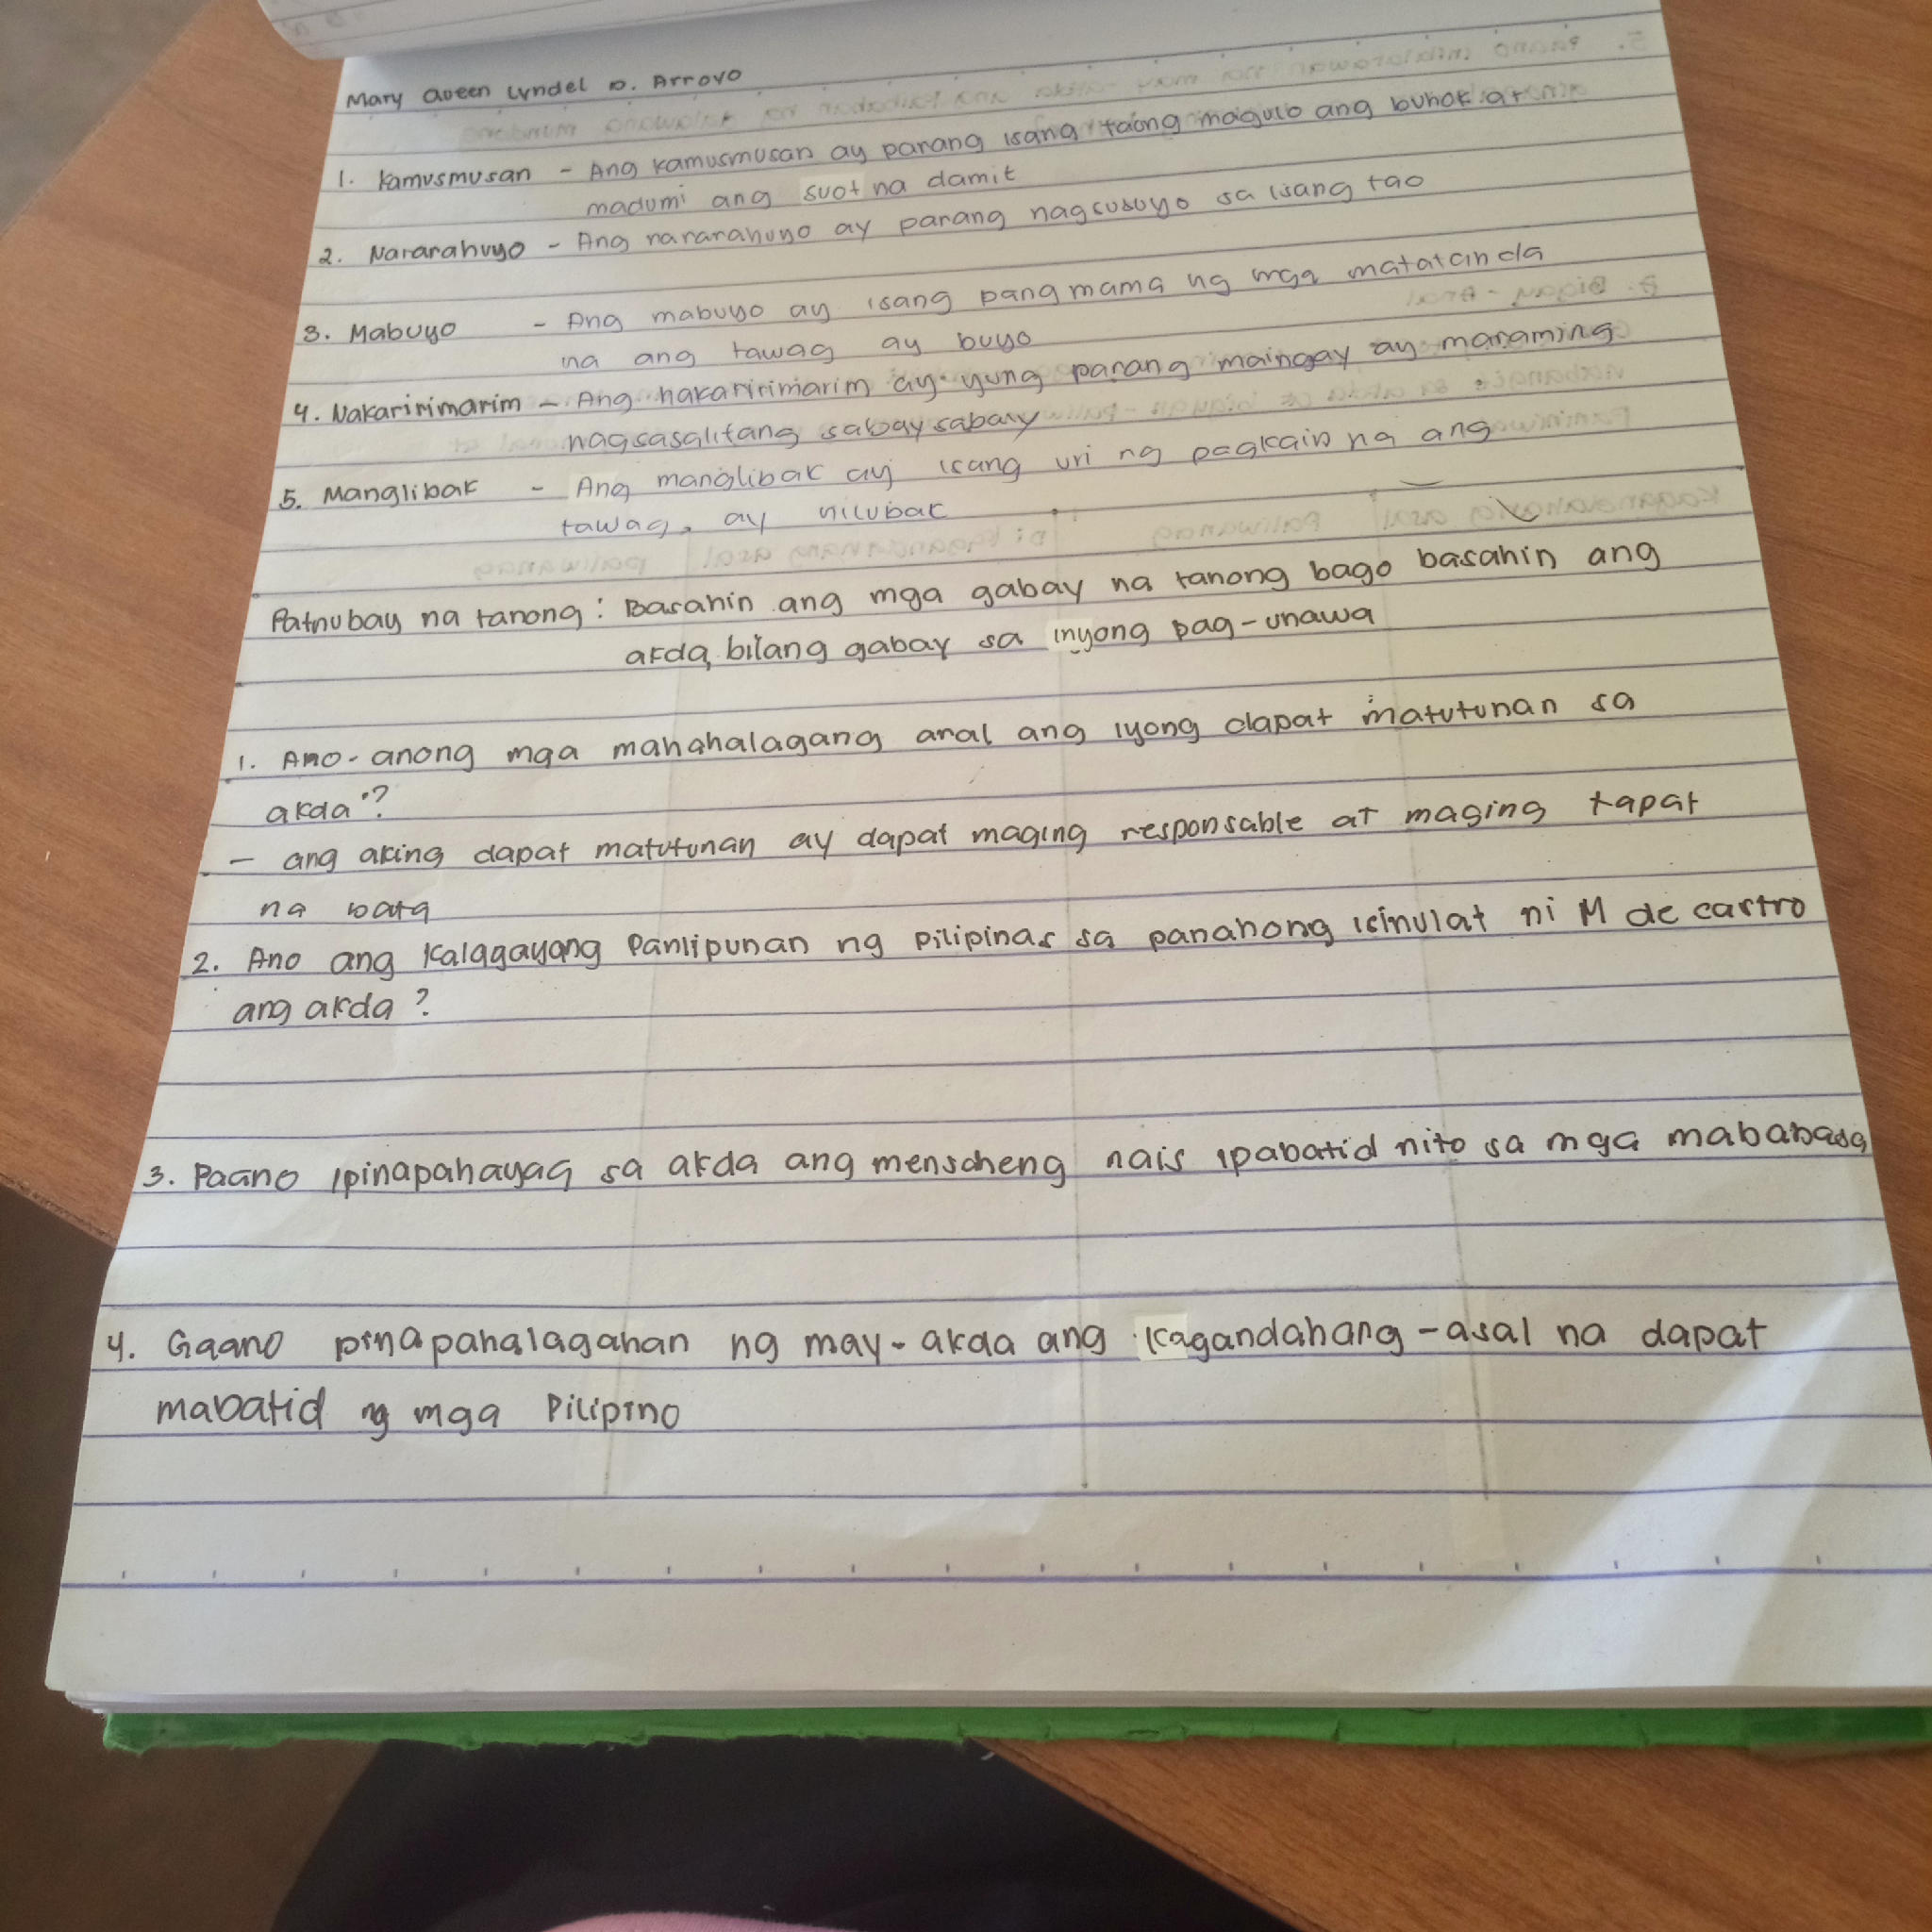 Mary Queen Lyndel D. Arroyo
1. Kamusmusan - Ang kamusmusan ay parang isang taong magulo ang buhok at
madumi ang suot na damit
2. Nararahuyo - Ang nararahuyo ay parang nagsusuyo sa isang tao
3. Mabuyo - Ang mabuyo ay isang pangmama ng mga matatanda
na ang tawag ay buyo
4. Nakaririmarim - Ang nakaririmarim ay yung parang maingay ay maraming
nagsasalitang sabay sabay
5. Manglibak - Ang manglibak ay isang uri ng pagkain na ang
tawag, ay nilubak
Patnubay na tanong: Basahin ang mga gabay na tanong bago basahin ang
akda, bilang gabay sa inyong pag-unawa
1. Ano-anong mga mahahalagang aral ang iyong dapat matutunan sa
akda?
- ang aking dapat matutunan ay dapat maging responsable at maging tapat
na bata
2. Ano ang kalagayang Panlipunan ng Pilipinas sa panahong isinulat ni M de castro
ang akda?
3. Paano ipinapahayag sa akda ang menscheng nais ipabatid nito sa mga mababasa
4. Gaano pinapahalagahan ng may-akda ang kagandahang-asal na dapat
mabatid ng mga Pilipino